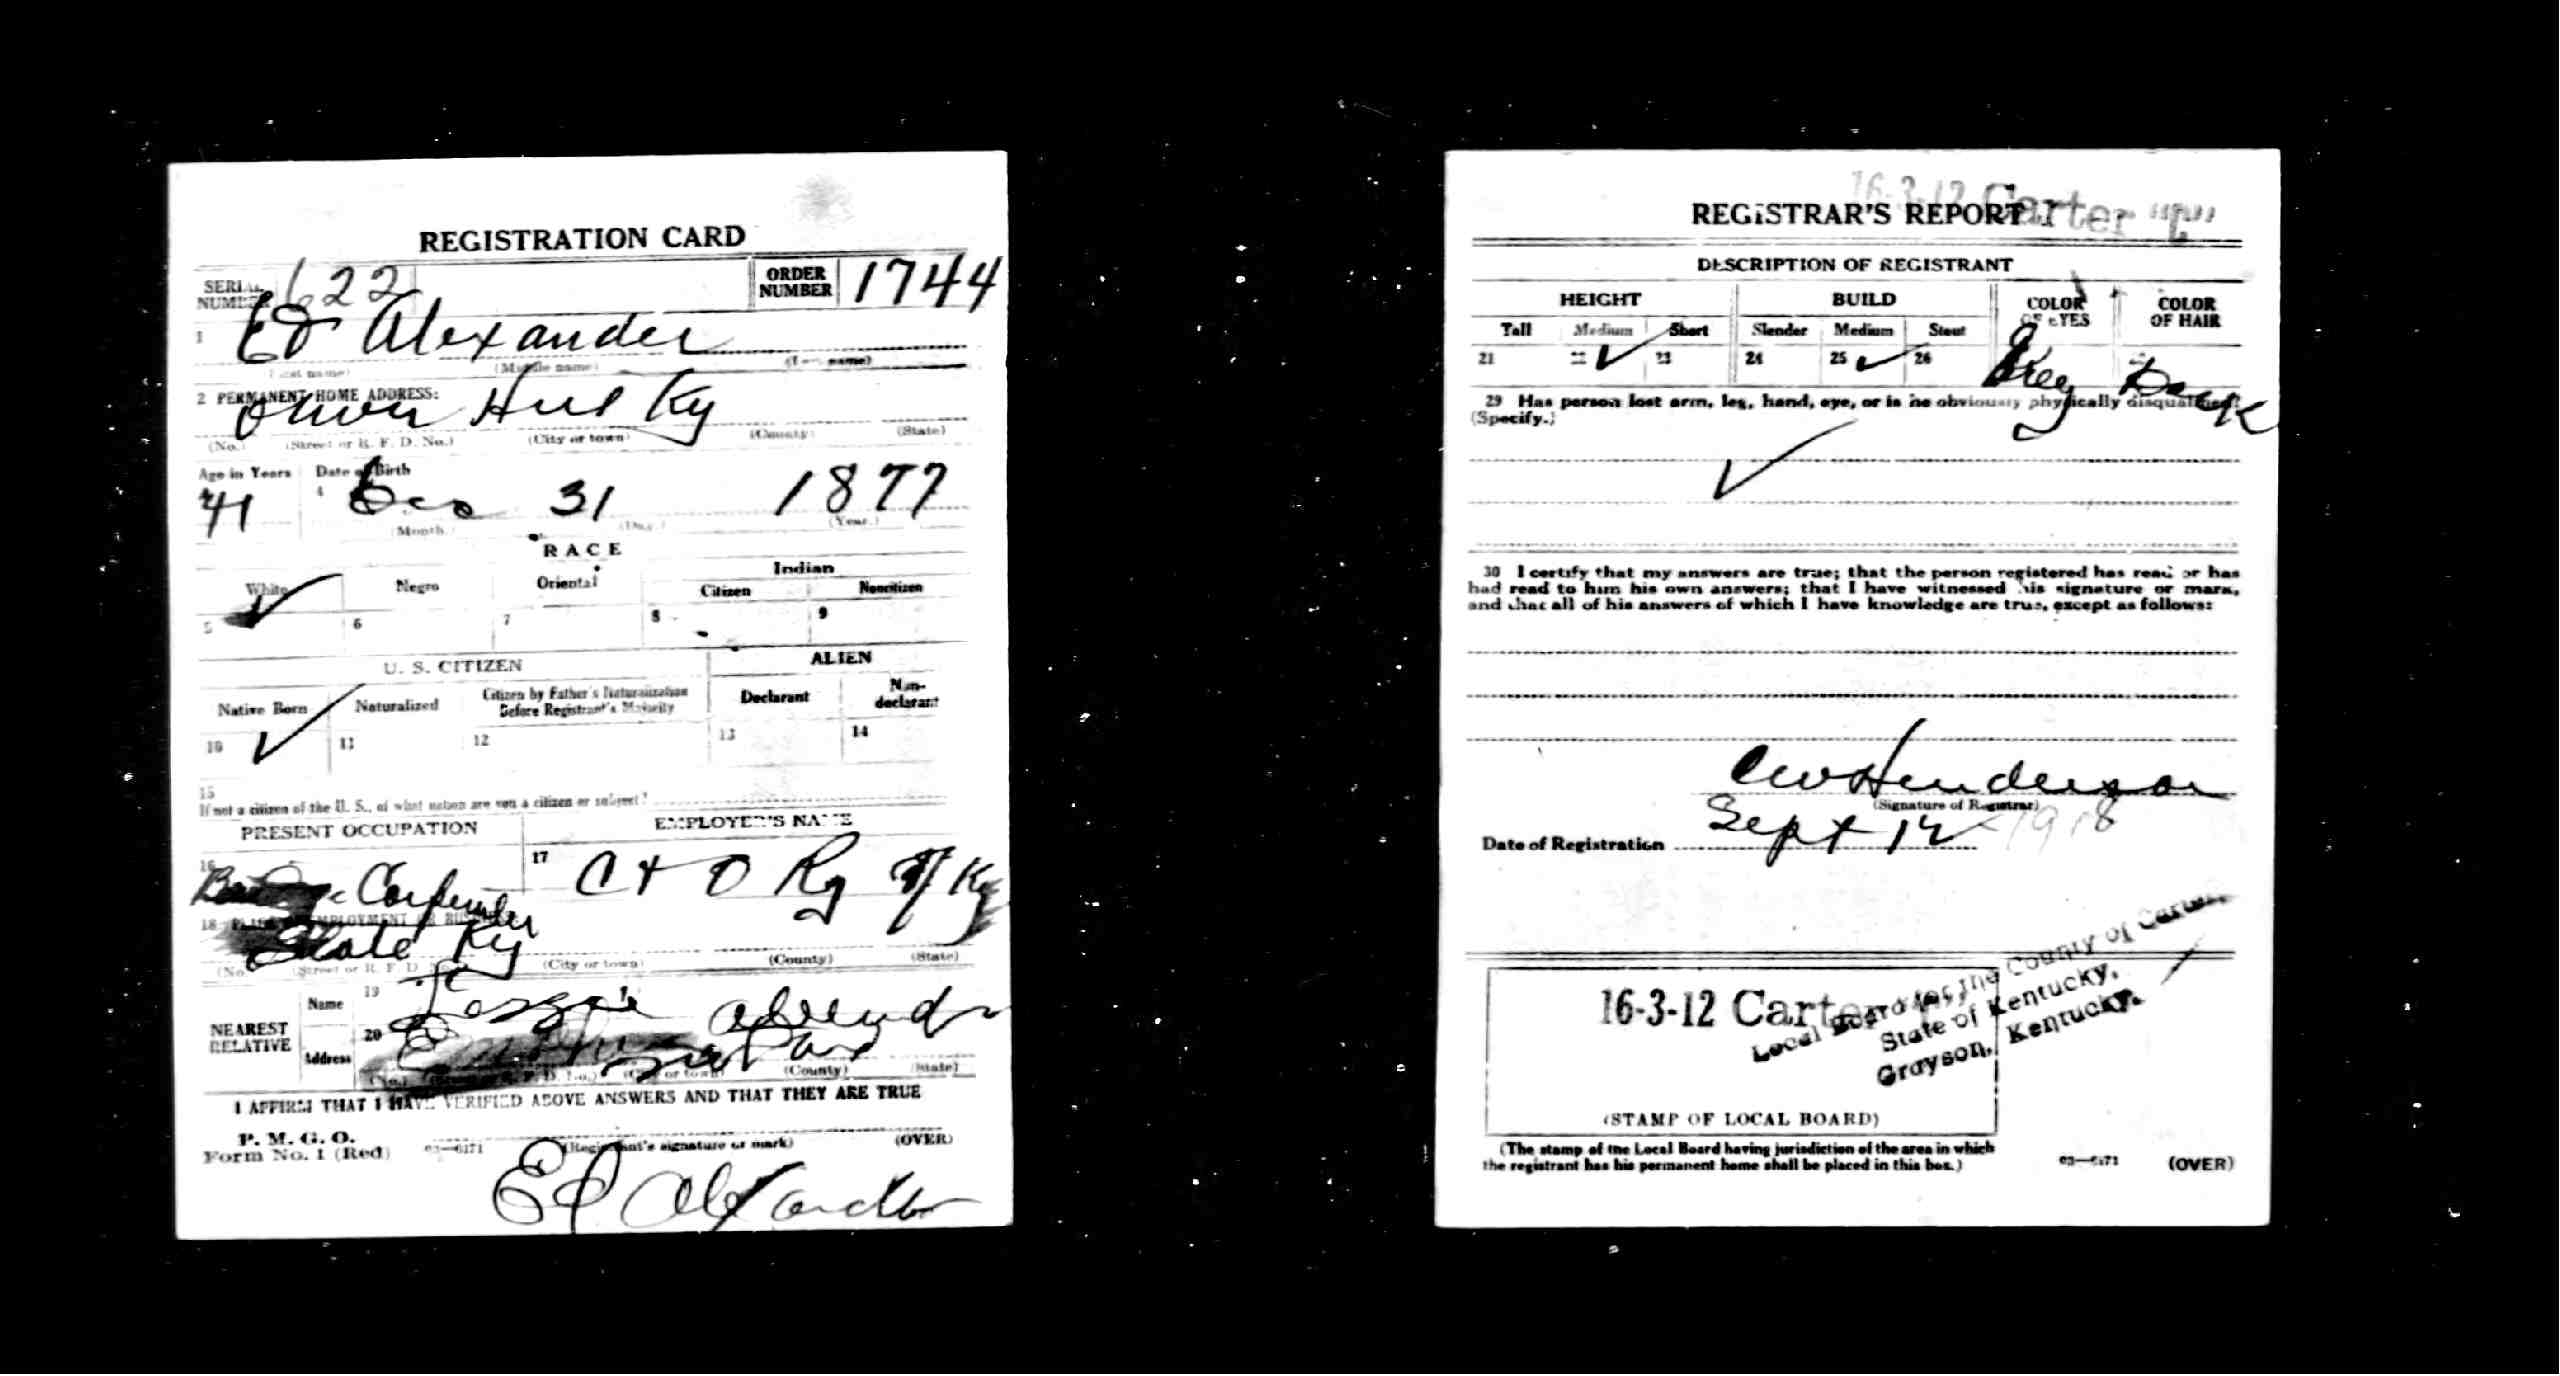 REGISTRATION CARD
SERIAL NUMBER 622 ORDER NUMBER 1744
1 Ed Alexander
(First name) (Middle name) (Last name)
2 PERMANENT HOME ADDRESS:
Oliver Hill Ky
(No.) (Street or R. F. D. No.) (City or town) (County) (State)
Age in Years Date of Birth
41 4 Dec 31 1877
(Month.) (Day.) (Year.)
RACE
White Negro Oriental Indian
Citizen Noncitizen
5 6 7 8 9
U. S. CITIZEN ALIEN
Native Born Naturalized Citizen by Father's Naturalization Before Registrant's Majority Declarant Non-declarant
10 11 12 13 14
15
If not a citizen of the U. S., of what nation are you a citizen or subject?
PRESENT OCCUPATION EMPLOYER'S NAME
16 Carpenter 17 C + O Ry of Ky
18 PLACE OF EMPLOYMENT OR BUSINESS:
State Ky
(No.) (Street or R. F. D. No.) (City or town) (County) (State)
NEAREST RELATIVE
Name 19
Address 20
(No.) (Street or R. F. D. No.) (City or town) (County) (State)
I AFFIRM THAT I HAVE VERIFIED ABOVE ANSWERS AND THAT THEY ARE TRUE
P. M. G. O.
Form No. 1 (Red) 03—6171 (Registrant's signature or mark) (OVER)
Ed Alexander
16-3-12 Carter "C"
REGISTRAR'S REPORT
DESCRIPTION OF REGISTRANT
HEIGHT BUILD COLOR OF EYES COLOR OF HAIR
Tall Medium Short Slender Medium Stout
21 22 23 24 25 26 Grey
29 Has person lost arm, leg, hand, eye, or is he obviously physically disqualified?
(Specify.)
30 I certify that my answers are true; that the person registered has read or has
had read to him his own answers; that I have witnessed his signature or mark,
and that all of his answers of which I have knowledge are true, except as follows:
C W Henderson
(Signature of Registrar)
Date of Registration Sept 12 1918
16-3-12 Carter
Local Board for the County of Carter,
State of Kentucky,
Grayson, Kentucky.
(STAMP OF LOCAL BOARD)
(The stamp of the Local Board having jurisdiction of the area in which
the registrant has his permanent home shall be placed in this box.)
03—6171 (OVER)